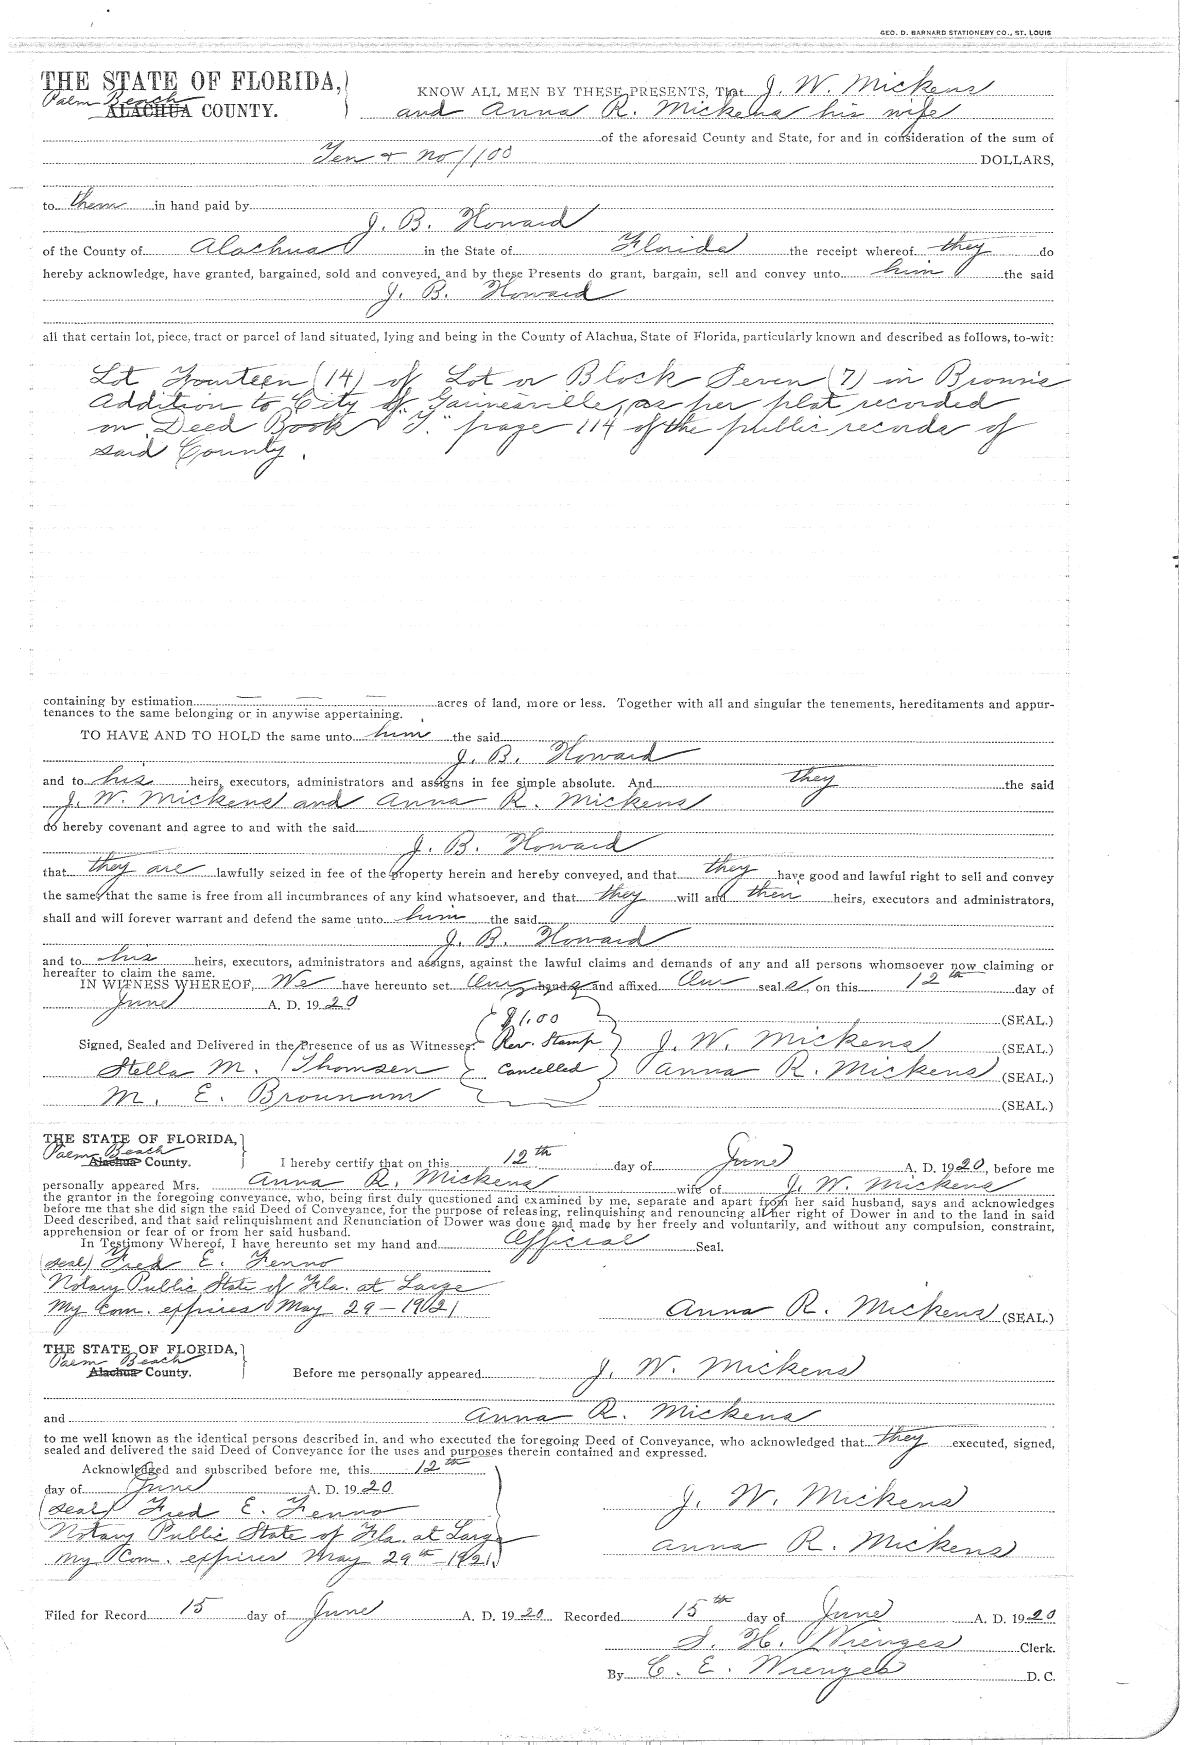 GEO. D. BARNARD STATIONERY CO., ST. LOUIS
THE STATE OF FLORIDA,
Palm Beach
ALACHUA COUNTY.
KNOW ALL MEN BY THESE PRESENTS, That J. W. Mickens
and Anna R. Mickens his wife
of the aforesaid County and State, for and in consideration of the sum of
Ten & no/100 DOLLARS,
to them in hand paid by
J. B. Howard
of the County of Alachua in the State of Florida the receipt whereof they do
hereby acknowledge, have granted, bargained, sold and conveyed, and by these Presents do grant, bargain, sell and convey unto him the said
J. B. Howard
all that certain lot, piece, tract or parcel of land situated, lying and being in the County of Alachua, State of Florida, particularly known and described as follows, to-wit:
Lot Fourteen (14) of Lot or Block Seven (7) in Brown's
Addition to City of Gainesville, as per plat recorded
on Deed Book "T." page 114 of the public records of
said County.
containing by estimation — — — acres of land, more or less. Together with all and singular the tenements, hereditaments and appur-
tenances to the same belonging or in anywise appertaining.
TO HAVE AND TO HOLD the same unto him the said
J. B. Howard
and to his heirs, executors, administrators and assigns in fee simple absolute. And they the said
J. W. Mickens and Anna R. Mickens
do hereby covenant and agree to and with the said
J. B. Howard
that they are lawfully seized in fee of the property herein and hereby conveyed, and that they have good and lawful right to sell and convey
the same; that the same is free from all incumbrances of any kind whatsoever, and that they will and their heirs, executors and administrators,
shall and will forever warrant and defend the same unto him the said
J. B. Howard
and to his heirs, executors, administrators and assigns, against the lawful claims and demands of any and all persons whomsoever now claiming or
hereafter to claim the same.
IN WITNESS WHEREOF, We have hereunto set Our hands and affixed Our seal s, on this 12th day of
June A. D. 1920
$1.00
Rev. Stamp
Cancelled
(SEAL.)
Signed, Sealed and Delivered in the Presence of us as Witnesses: J. W. Mickens (SEAL.)
Stella M. Thomsen Anna R. Mickens (SEAL.)
M. E. (SEAL.)
THE STATE OF FLORIDA,
Palm Beach
Alachua County.
I hereby certify that on this 12th day of June A. D. 1920, before me
personally appeared Mrs. Anna R. Mickens wife of J. W. Mickens
the grantor in the foregoing conveyance, who, being first duly questioned and examined by me, separate and apart from her said husband, says and acknowledges
before me that she did sign the said Deed of Conveyance, for the purpose of releasing, relinquishing and renouncing all her right of Dower in and to the land in said
Deed described, and that said relinquishment and Renunciation of Dower was done and made by her freely and voluntarily, and without any compulsion, constraint,
apprehension or fear of or from her said husband.
In Testimony Whereof, I have hereunto set my hand and Official Seal.
(seal) Fred E. Fenno
Notary Public State of Fla. at Large
My Com. expires May 29-1921
Anna R. Mickens (SEAL.)
THE STATE OF FLORIDA,
Palm Beach
Alachua County.
Before me personally appeared J. W. Mickens
and Anna R. Mickens
to me well known as the identical persons described in, and who executed the foregoing Deed of Conveyance, who acknowledged that they executed, signed,
sealed and delivered the said Deed of Conveyance for the uses and purposes therein contained and expressed.
Acknowledged and subscribed before me, this 12th
day of June A. D. 1920
(seal) Fred E. Fenno
Notary Public State of Fla. at Large
My Com. expires May 29th-1921
J. W. Mickens
Anna R. Mickens
Filed for Record 15 day of June A. D. 1920 Recorded 15th day of June A. D. 1920
S. H. Wienges Clerk.
By C. E. Wienges D. C.